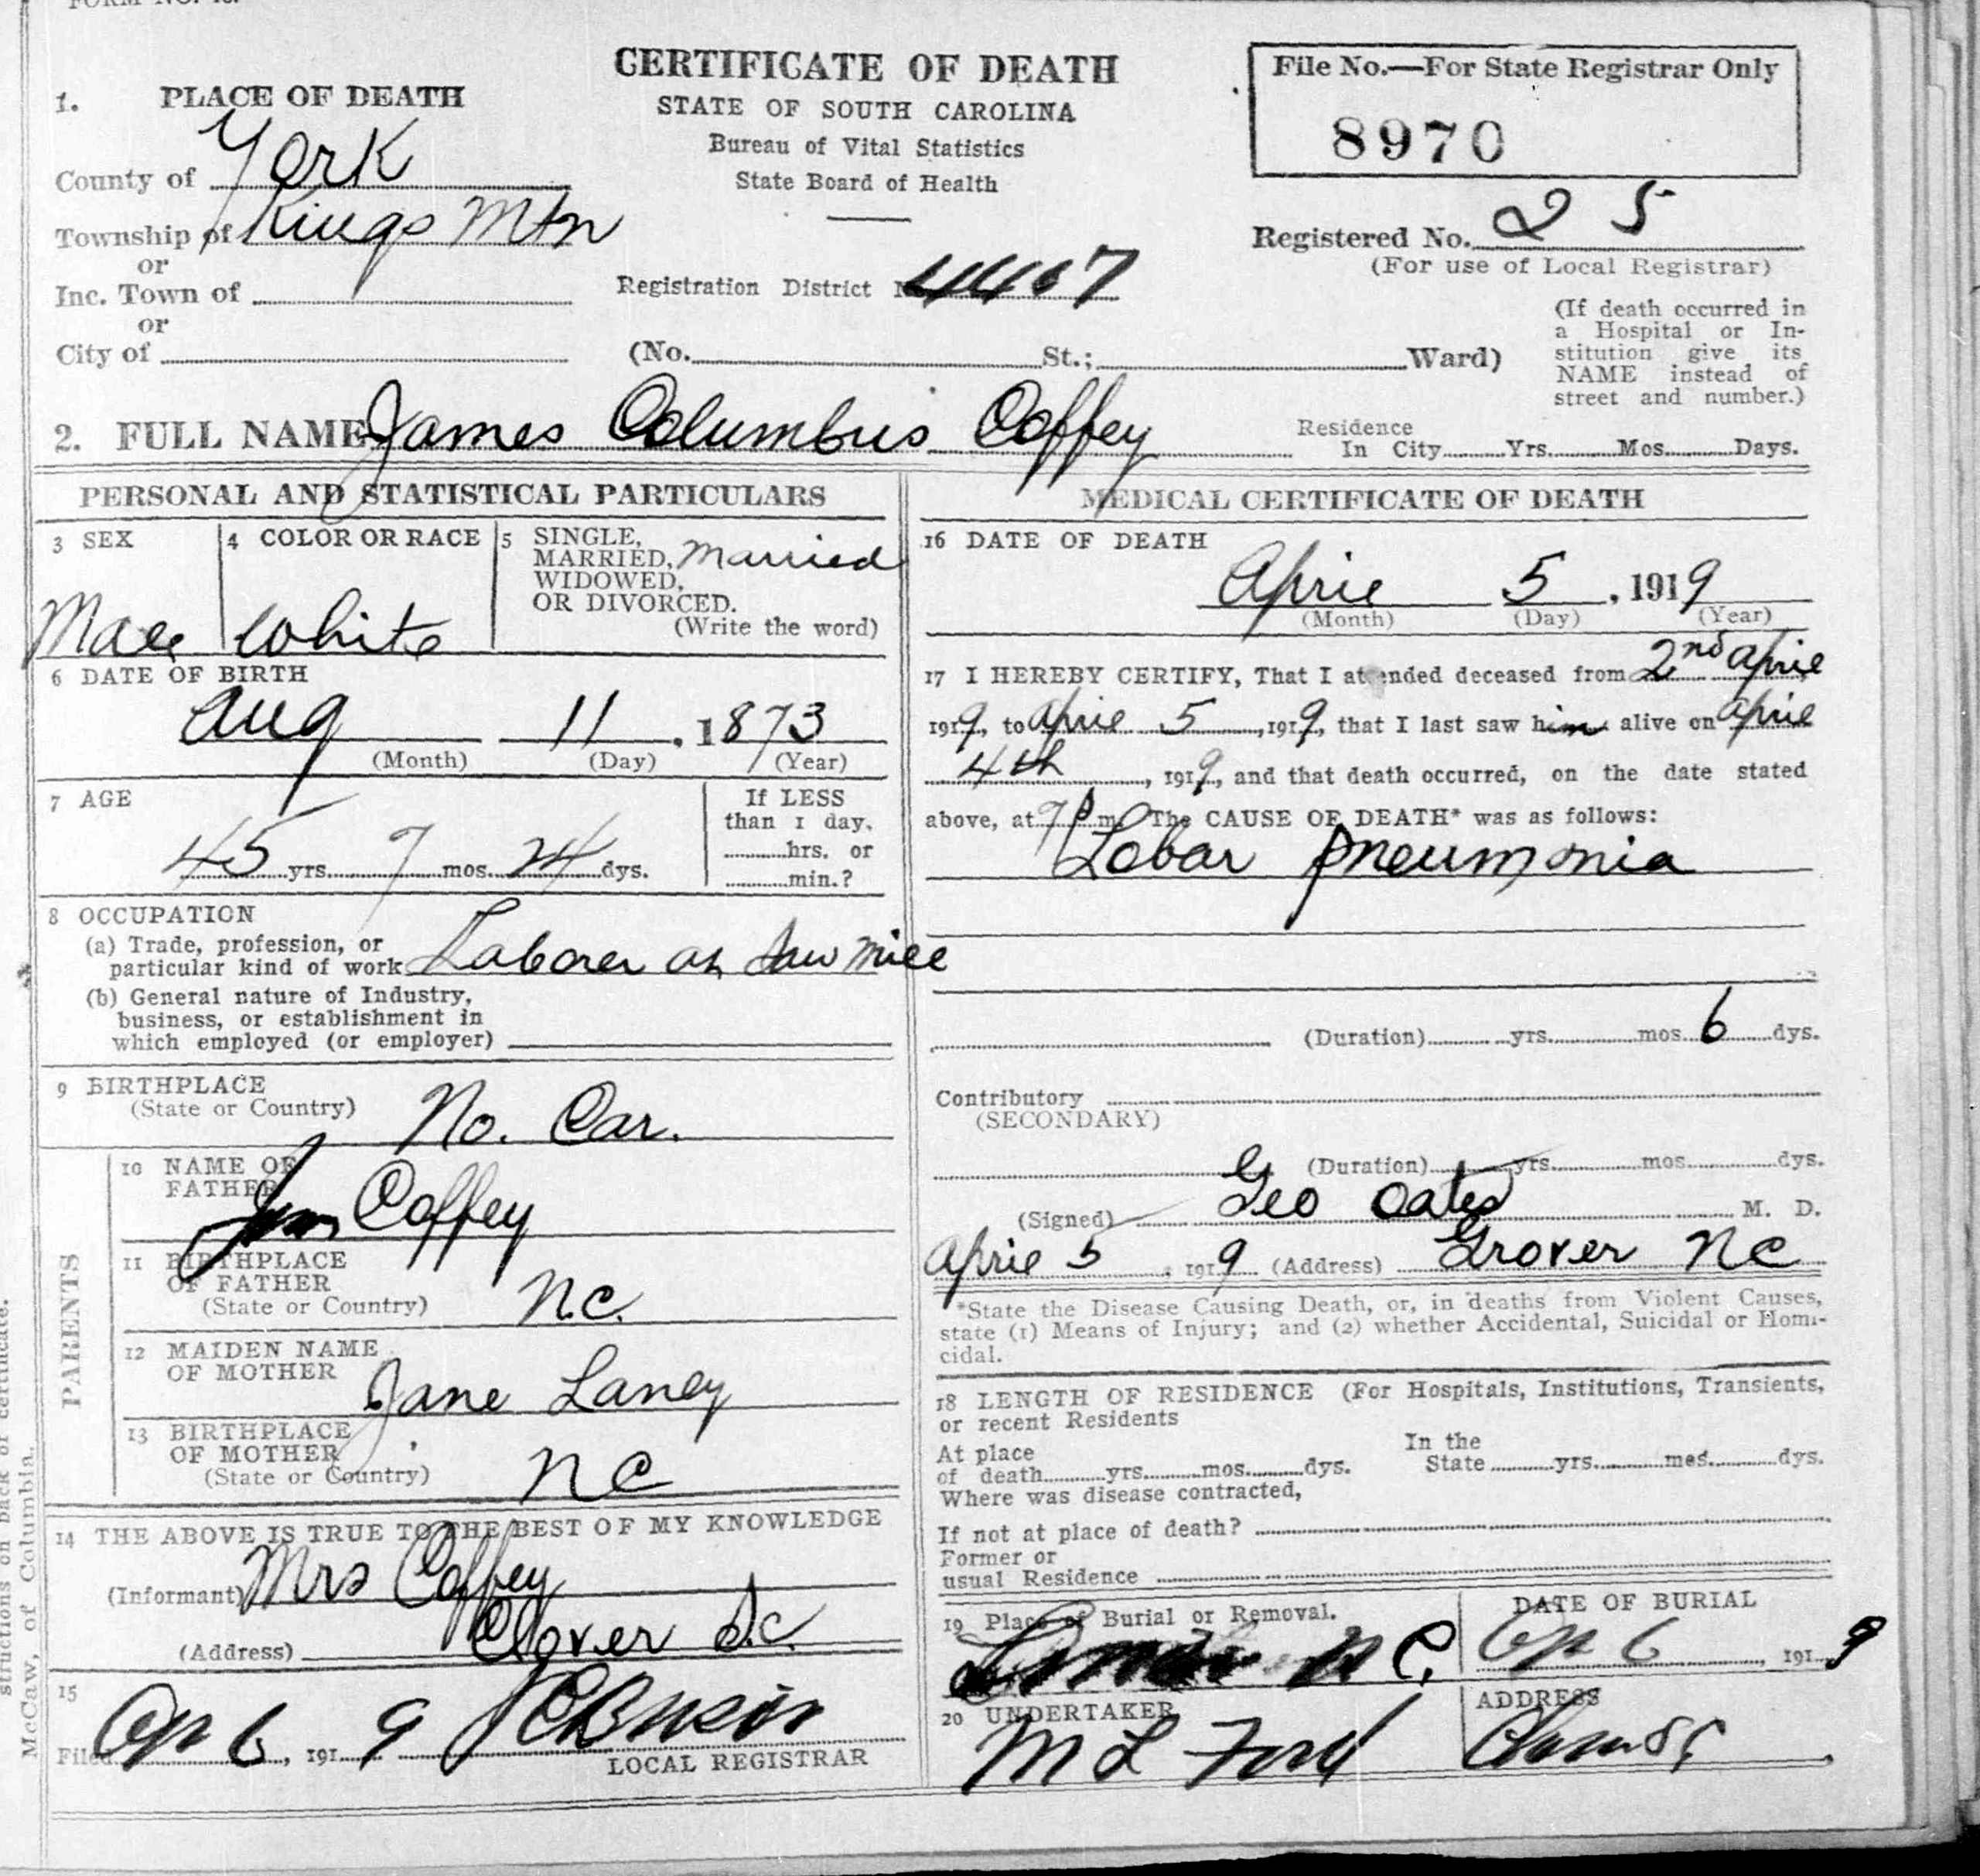 CERTIFICATE OF DEATH
STATE OF SOUTH CAROLINA
Bureau of Vital Statistics
State Board of Health
File No.—For State Registrar Only
8970
1. PLACE OF DEATH
County of York
Township of Kings Mtn
or
Inc. Town of
or
City of
Registration District 4467
Registered No. 25
(For use of Local Registrar)
(No. St.; Ward)
(If death occurred in
a Hospital or In-
stitution give its
NAME instead of
street and number.)
2. FULL NAME James Columbus Coffey
Residence
In City Yrs. Mos. Days.
PERSONAL AND STATISTICAL PARTICULARS
3 SEX
Male
4 COLOR OR RACE
White
5 SINGLE,
MARRIED,
WIDOWED,
OR DIVORCED.
(Write the word)
Married
6 DATE OF BIRTH
Aug 11, 1873
(Month) (Day) (Year)
7 AGE
45 yrs. 7 mos. 24 dys.
If LESS
than 1 day,
hrs. or
min.?
8 OCCUPATION
(a) Trade, profession, or
particular kind of work Laborer at Saw Mill
(b) General nature of Industry,
business, or establishment in
which employed (or employer)
9 BIRTHPLACE
(State or Country) No. Car.
PARENTS
10 NAME OF
FATHER Coffey
11 BIRTHPLACE
OF FATHER
(State or Country) N.C.
12 MAIDEN NAME
OF MOTHER Jane Laney
13 BIRTHPLACE
OF MOTHER
(State or Country) N C
14 THE ABOVE IS TRUE TO THE BEST OF MY KNOWLEDGE
(Informant) Mrs Coffey
(Address) Clover S.C.
15
Filed Ap 6, 1919
LOCAL REGISTRAR
MEDICAL CERTIFICATE OF DEATH
16 DATE OF DEATH
April 5, 1919
(Month) (Day) (Year)
17 I HEREBY CERTIFY, That I attended deceased from 2nd April
1919, to April 5, 1919, that I last saw him alive on April
4th, 1919, and that death occurred, on the date stated
above, at 7 P m. The CAUSE OF DEATH* was as follows:
Lobar pneumonia
(Duration) yrs. mos. 6 dys.
Contributory
(SECONDARY)
(Duration) yrs. mos. dys.
(Signed) Geo Oates M. D.
April 5, 1919 (Address) Grover N C
*State the Disease Causing Death, or, in deaths from Violent Causes,
state (1) Means of Injury; and (2) whether Accidental, Suicidal or Homi-
cidal.
18 LENGTH OF RESIDENCE (For Hospitals, Institutions, Transients,
or recent Residents
At place
of death yrs. mos. dys.
In the
State yrs. mos. dys.
Where was disease contracted,
If not at place of death?
Former or
usual Residence
19 Place of Burial or Removal.
N C.
DATE OF BURIAL
Ap 6, 1919
20 UNDERTAKER
M L Ford
ADDRESS
structions on back of certificate.
McCaw, of Columbia.